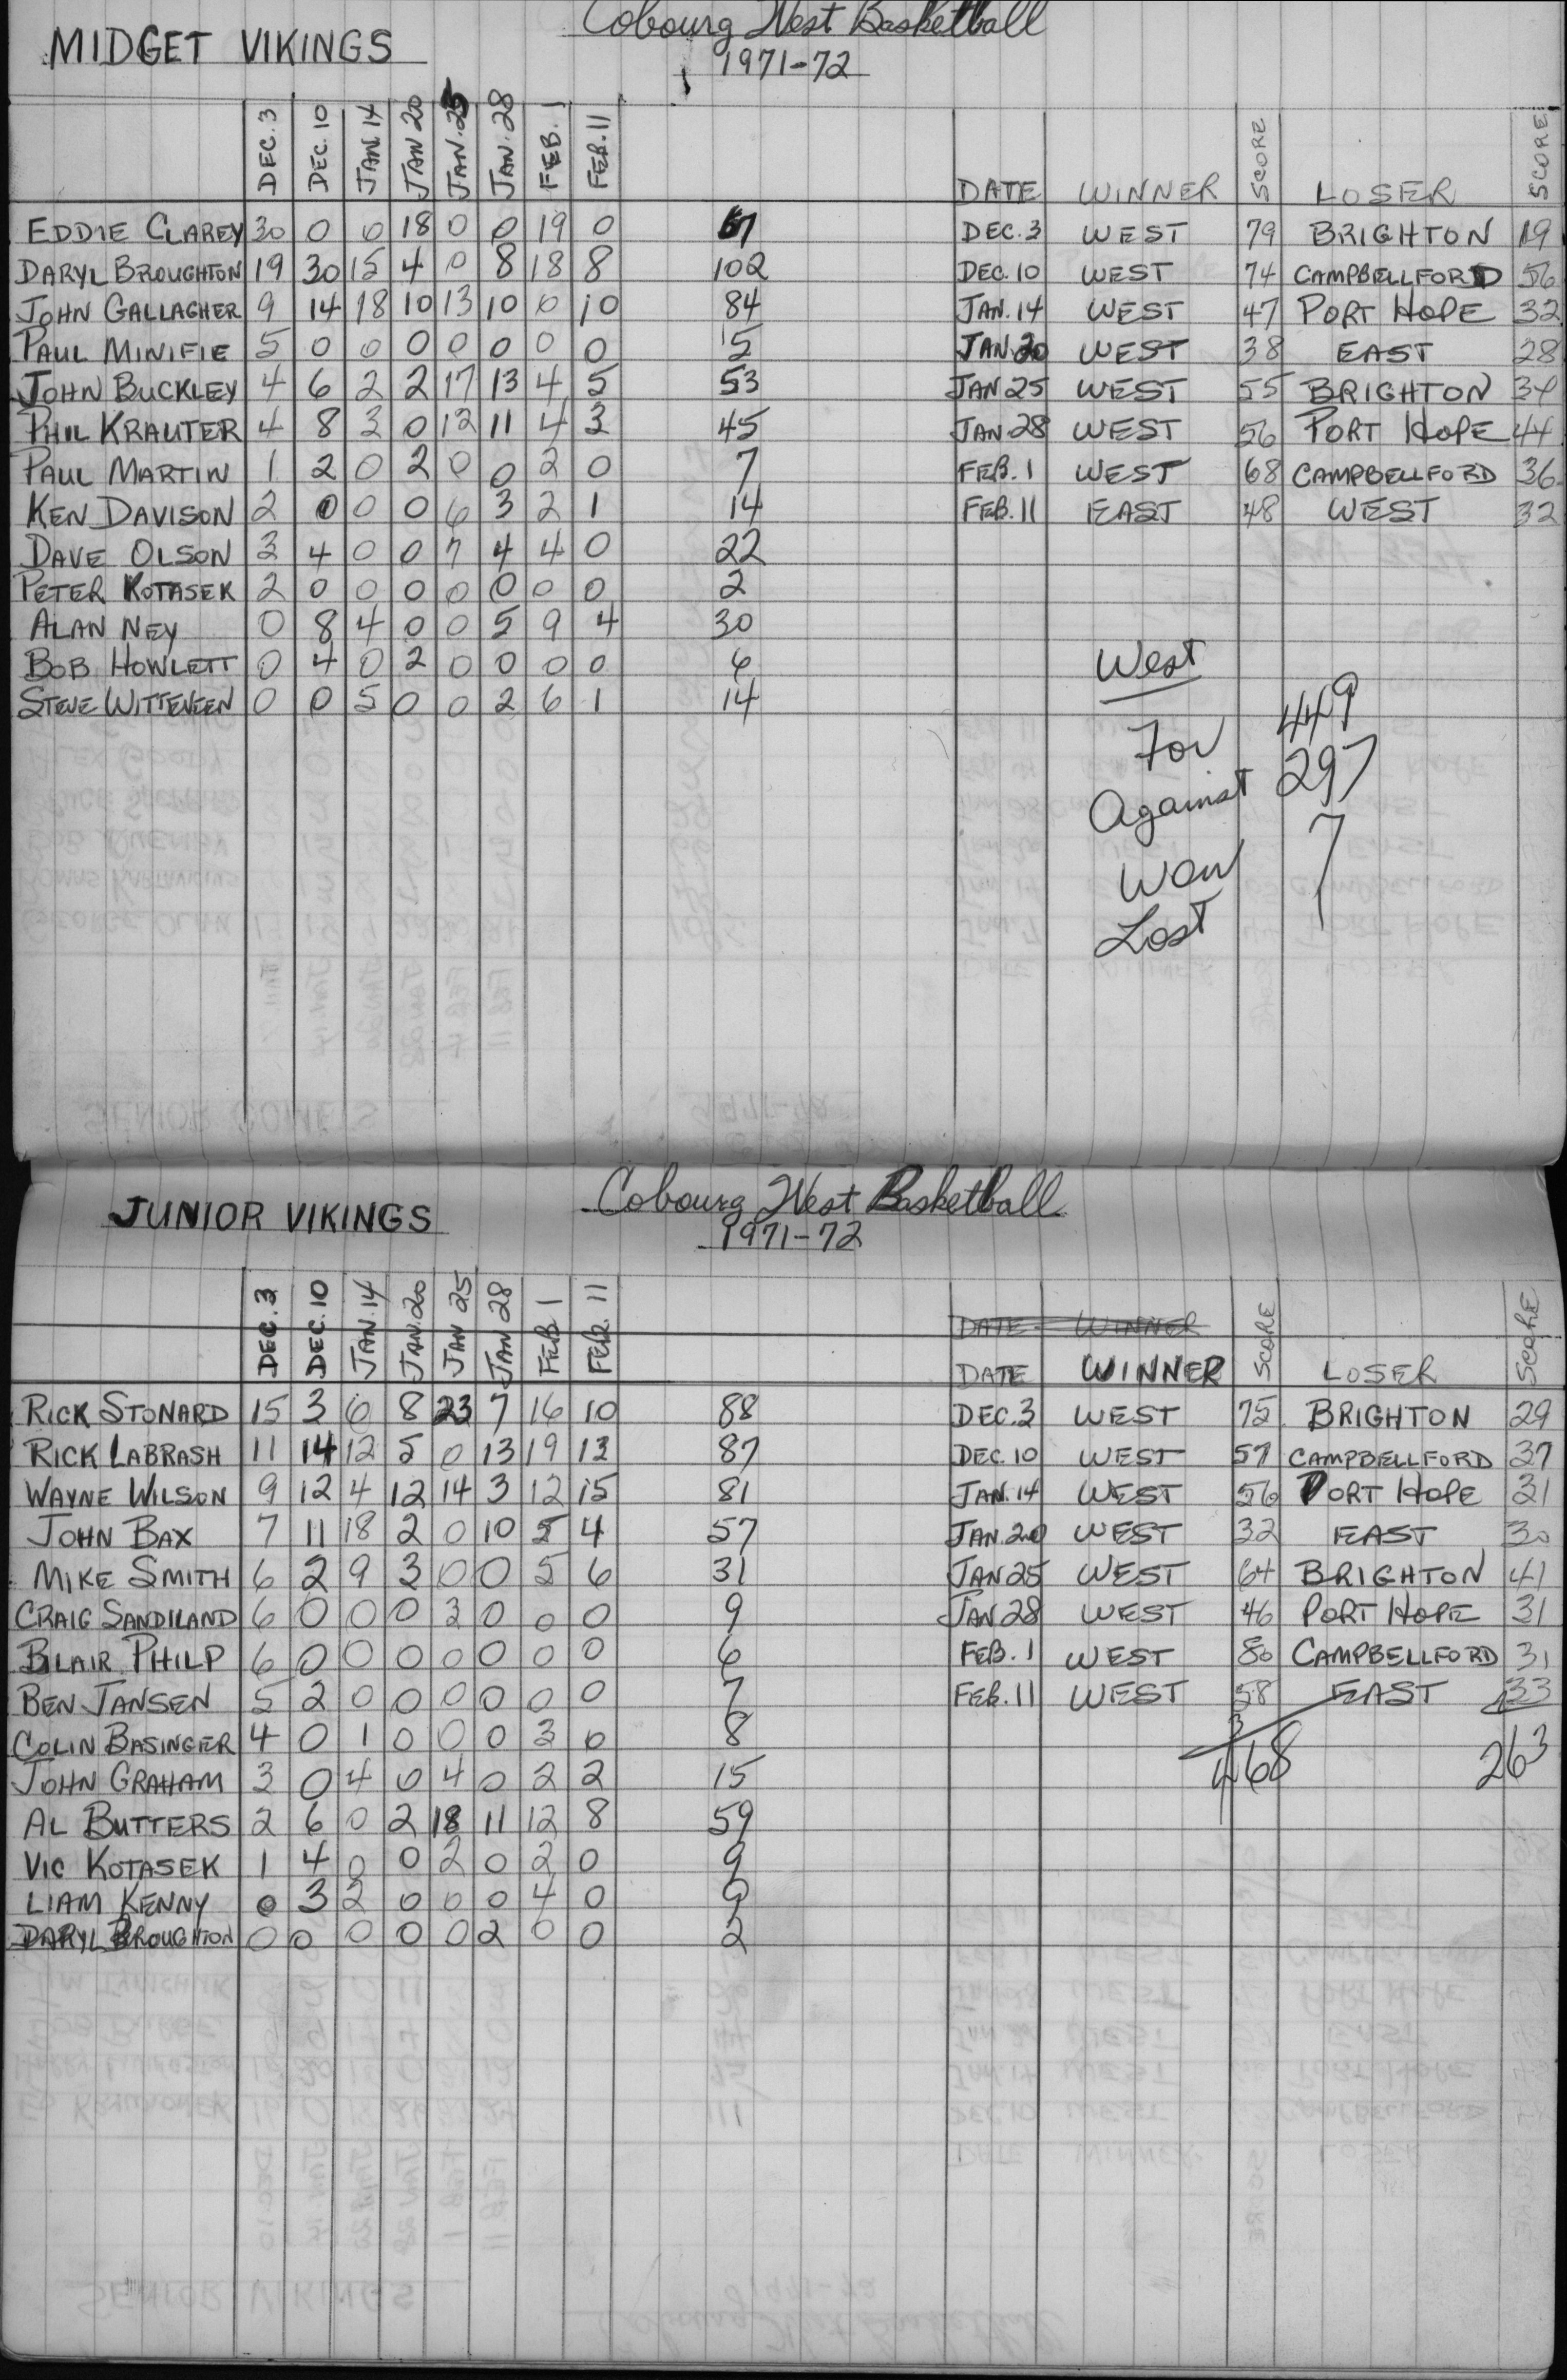 Cobourg West Basketball
MIDGET VIKINGS
1971-72
DEC. 3 DEC. 10 JAN. 14 JAN 20 JAN. 25 JAN. 28 FEB. 1 FEB. 11 DATE WINNER SCORE LOSER SCORE
EDDIE CLAREY 30 0 0 18 0 0 19 0 67 DEC. 3 WEST 79 BRIGHTON 19
DARYL BROUGHTON 19 30 15 4 0 8 18 8 102 DEC. 10 WEST 74 CAMPBELLFORD 56
JOHN GALLAGHER 9 14 18 10 13 10 0 10 84 JAN. 14 WEST 47 PORT HOPE 32
PAUL MINIFIE 5 0 0 0 0 0 0 0 5 JAN. 20 WEST 38 EAST 28
JOHN BUCKLEY 4 6 2 2 17 13 4 5 53 JAN 25 WEST 55 BRIGHTON 34
PHIL KRAUTER 4 8 3 0 12 11 4 3 45 JAN 28 WEST 56 PORT HOPE 44
PAUL MARTIN 1 2 0 2 0 0 2 0 7 FEB. 1 WEST 68 CAMPBELLFORD 36
KEN DAVISON 2 0 0 0 6 3 2 1 14 FEB. 11 EAST 48 WEST 32
DAVE OLSON 3 4 0 0 7 4 4 0 22
PETER KOTASEK 2 0 0 0 0 0 0 0 2
ALAN NEY 0 8 4 0 0 5 9 4 30
BOB HOWLETT 0 4 0 2 0 0 0 0 6
STEVE WITTEVEEN 0 0 5 0 0 2 6 1 14
West
For 449
Against 297
Won 7
Lost 1
Cobourg West Basketball
JUNIOR VIKINGS
1971-72
DATE WINNER
DEC. 3 DEC. 10 JAN. 14 JAN. 20 JAN 25 JAN 28 FEB 1 FEB. 11 DATE WINNER SCORE LOSER SCORE
RICK STONARD 15 3 6 8 23 7 16 10 88 DEC. 3 WEST 75 BRIGHTON 29
RICK LABRASH 11 14 12 5 0 13 19 13 87 DEC. 10 WEST 57 CAMPBELLFORD 37
WAYNE WILSON 9 12 4 12 14 3 12 15 81 JAN. 14 WEST 56 PORT HOPE 31
JOHN BAX 7 11 18 2 0 10 5 4 57 JAN. 20 WEST 32 EAST 30
MIKE SMITH 6 2 9 3 0 0 5 6 31 JAN 25 WEST 64 BRIGHTON 41
CRAIG SANDILAND 6 0 0 0 3 0 0 0 9 JAN 28 WEST 46 PORT HOPE 31
BLAIR PHILP 6 0 0 0 0 0 0 0 6 FEB. 1 WEST 80 CAMPBELLFORD 31
BEN JANSEN 5 2 0 0 0 0 0 0 7 FEB. 11 WEST 58 EAST 33
COLIN BASINGER 4 0 1 0 0 0 3 0 8 3
468 263
JOHN GRAHAM 3 0 4 0 4 0 2 2 15
AL BUTTERS 2 6 0 2 18 11 12 8 59
VIC KOTASEK 1 4 0 0 2 0 2 0 9
LIAM KENNY 0 3 2 0 0 0 4 0 9
DARYL BROUGHTON 0 0 0 0 0 2 0 0 2